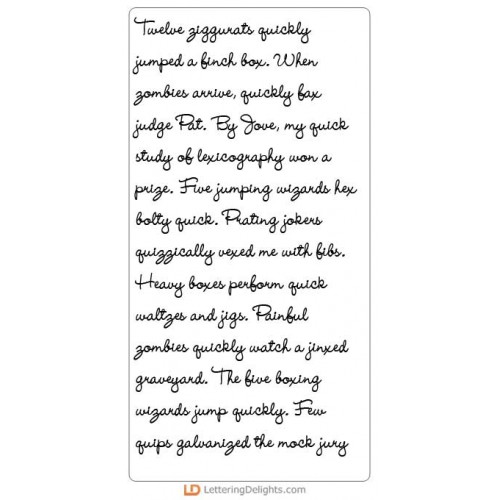 Twelve ziggurats quickly
jumped a finch box. When
zombies arrive, quickly fax
judge Pat. By Jove, my quick
study of lexicography won a
prize. Five jumping wizards hex
bolty quick. Prating jokers
quizzically vexed me with fibs.
Heavy boxes perform quick
waltzes and jigs. Painful
zombies quickly watch a jinxed
graveyard. The five boxing
wizards jump quickly. Few
quips galvanized the mock jury
LD LetteringDelights.com